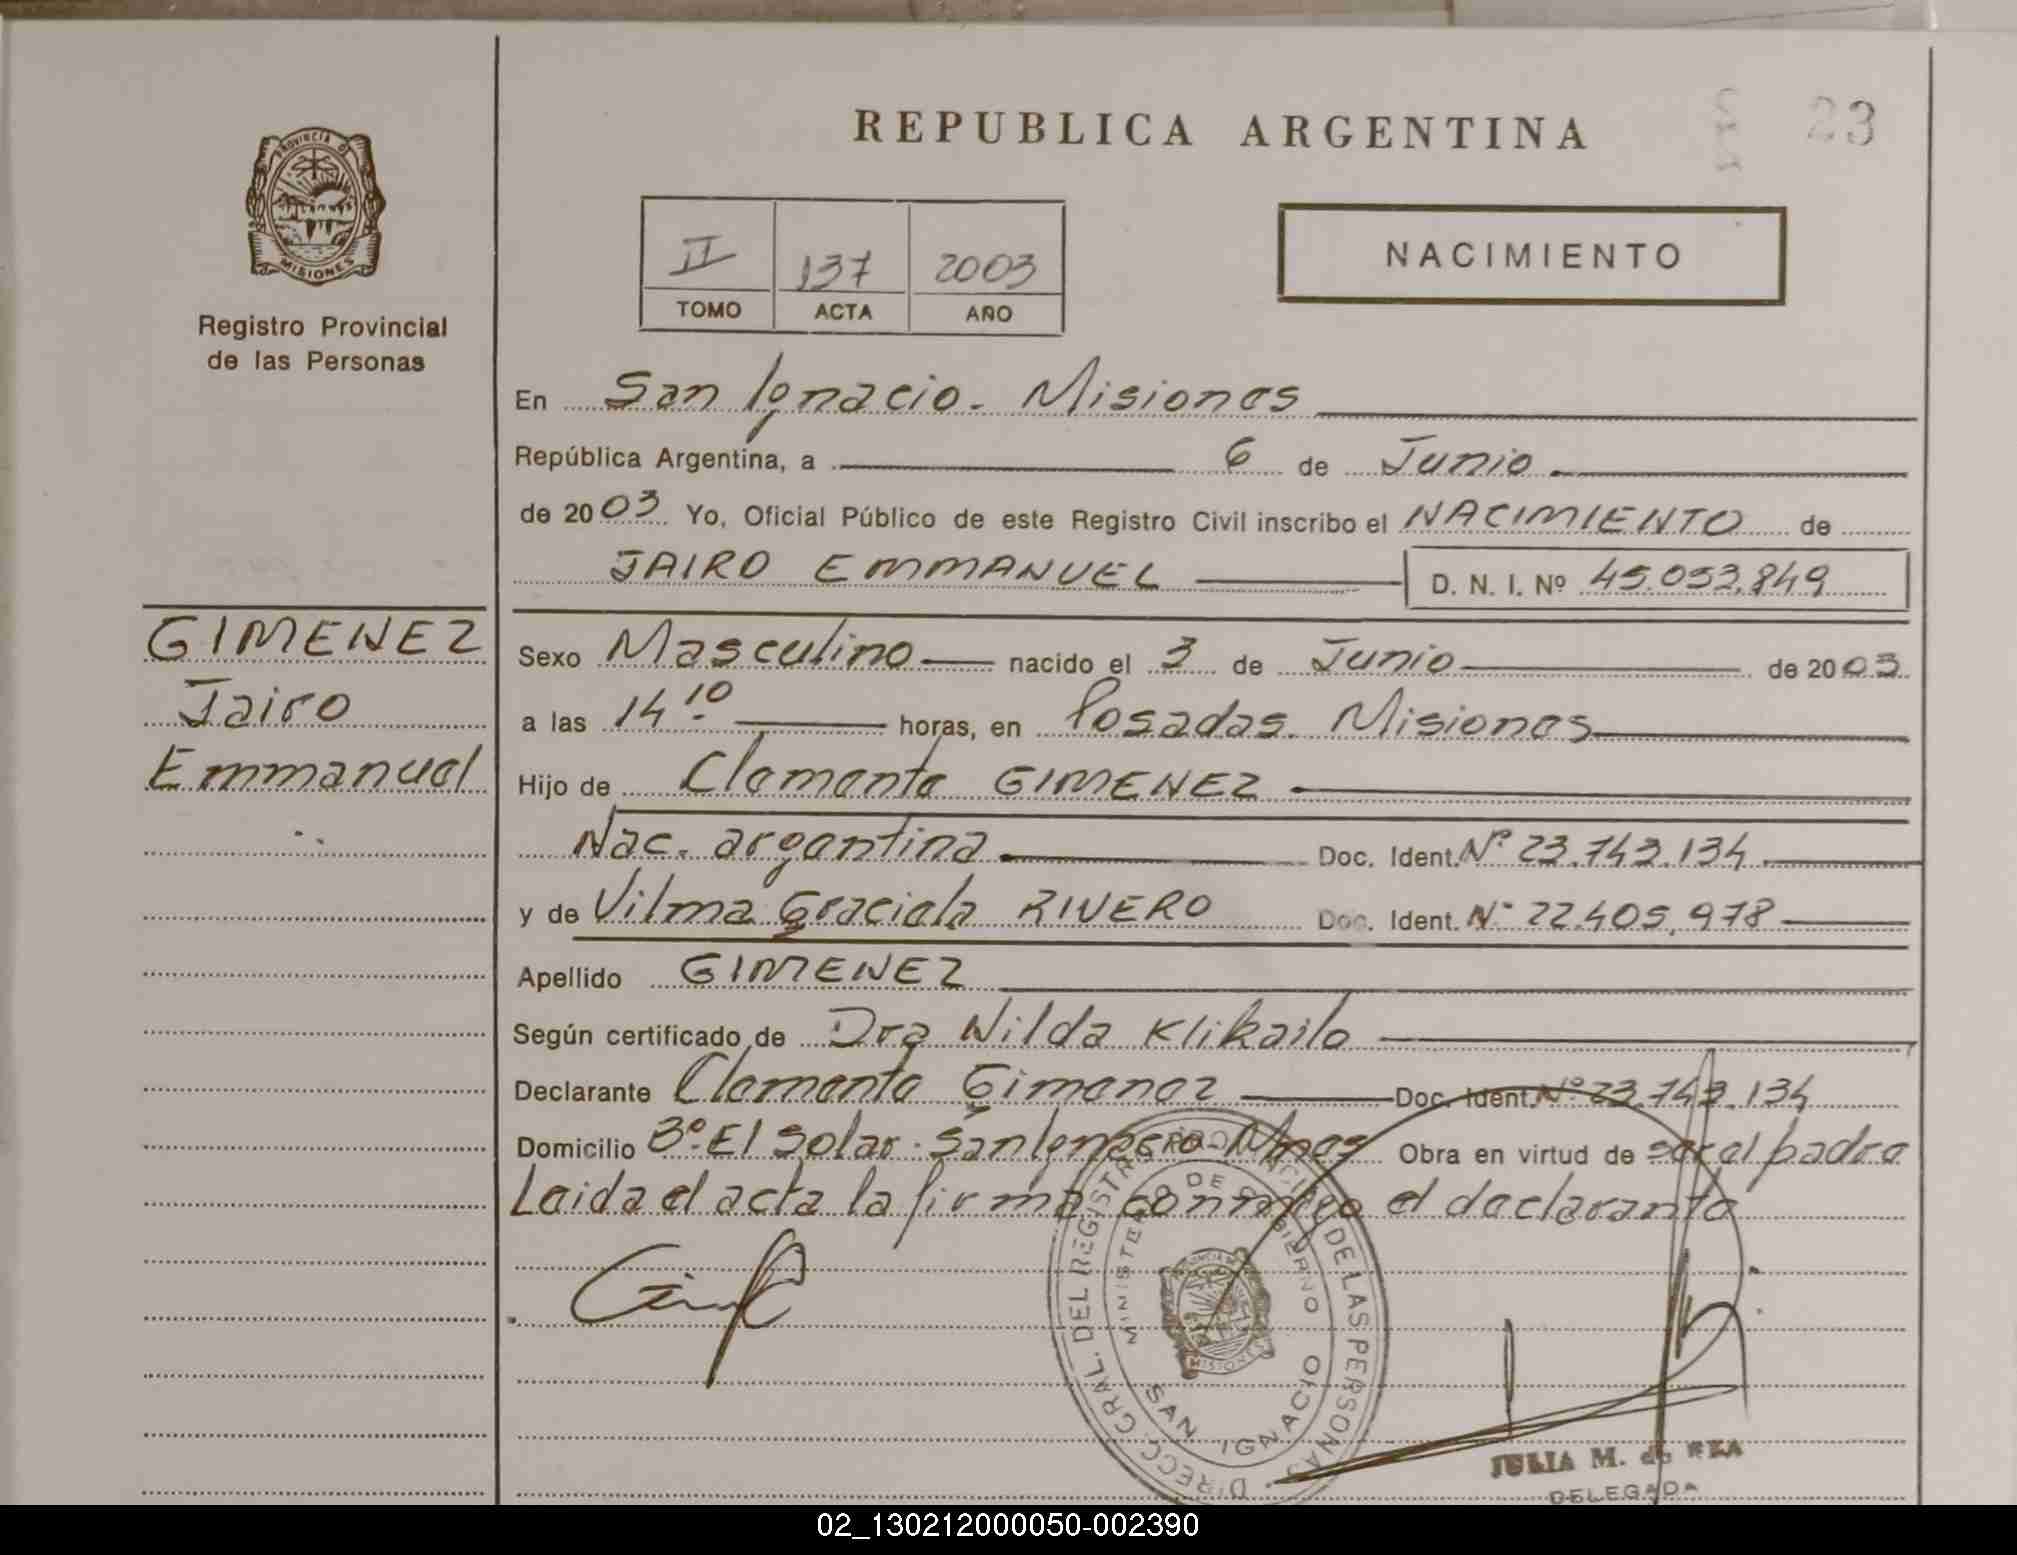 REPUBLICA ARGENTINA
23
PROVINCIA D
MISIONES
Registro Provincial
de las Personas
II 137 2003
TOMO ACTA AÑO
NACIMIENTO
En San Ignacio - Misiones
República Argentina, a 6 de Junio
de 2003 Yo, Oficial Público de este Registro Civil inscribo el NACIMIENTO de
JAIRO EMMANUEL D. N. I. Nº 45.053.849
GIMENEZ
Jairo
Emmanuel
Sexo Masculino nacido el 3 de Junio de 2003
a las 14.10 horas, en Posadas. Misiones
Hijo de Clemente GIMENEZ
Nac. argentina Doc. Ident. Nº 23.743.134
y de Vilma Graciela RIVERO Doc. Ident. Nº 22.405.978
Apellido GIMENEZ
Según certificado de Dra Nilda Klikailo
Declarante Clemente Gimenez Doc. Ident. Nº 23.743.134
Domicilio Bº El Solar - San Ignacio Mnes Obra en virtud de ser el padre
Leida el acta la firma conmigo el declarante
DIRECC. GRAL. DEL REGISTRO PROVINCIAL DE LAS PERSONAS
MINISTERIO DE GOBIERNO
MISIONES
SAN IGNACIO
JULIA M. de
DELEGADA
02_130212000050-002390